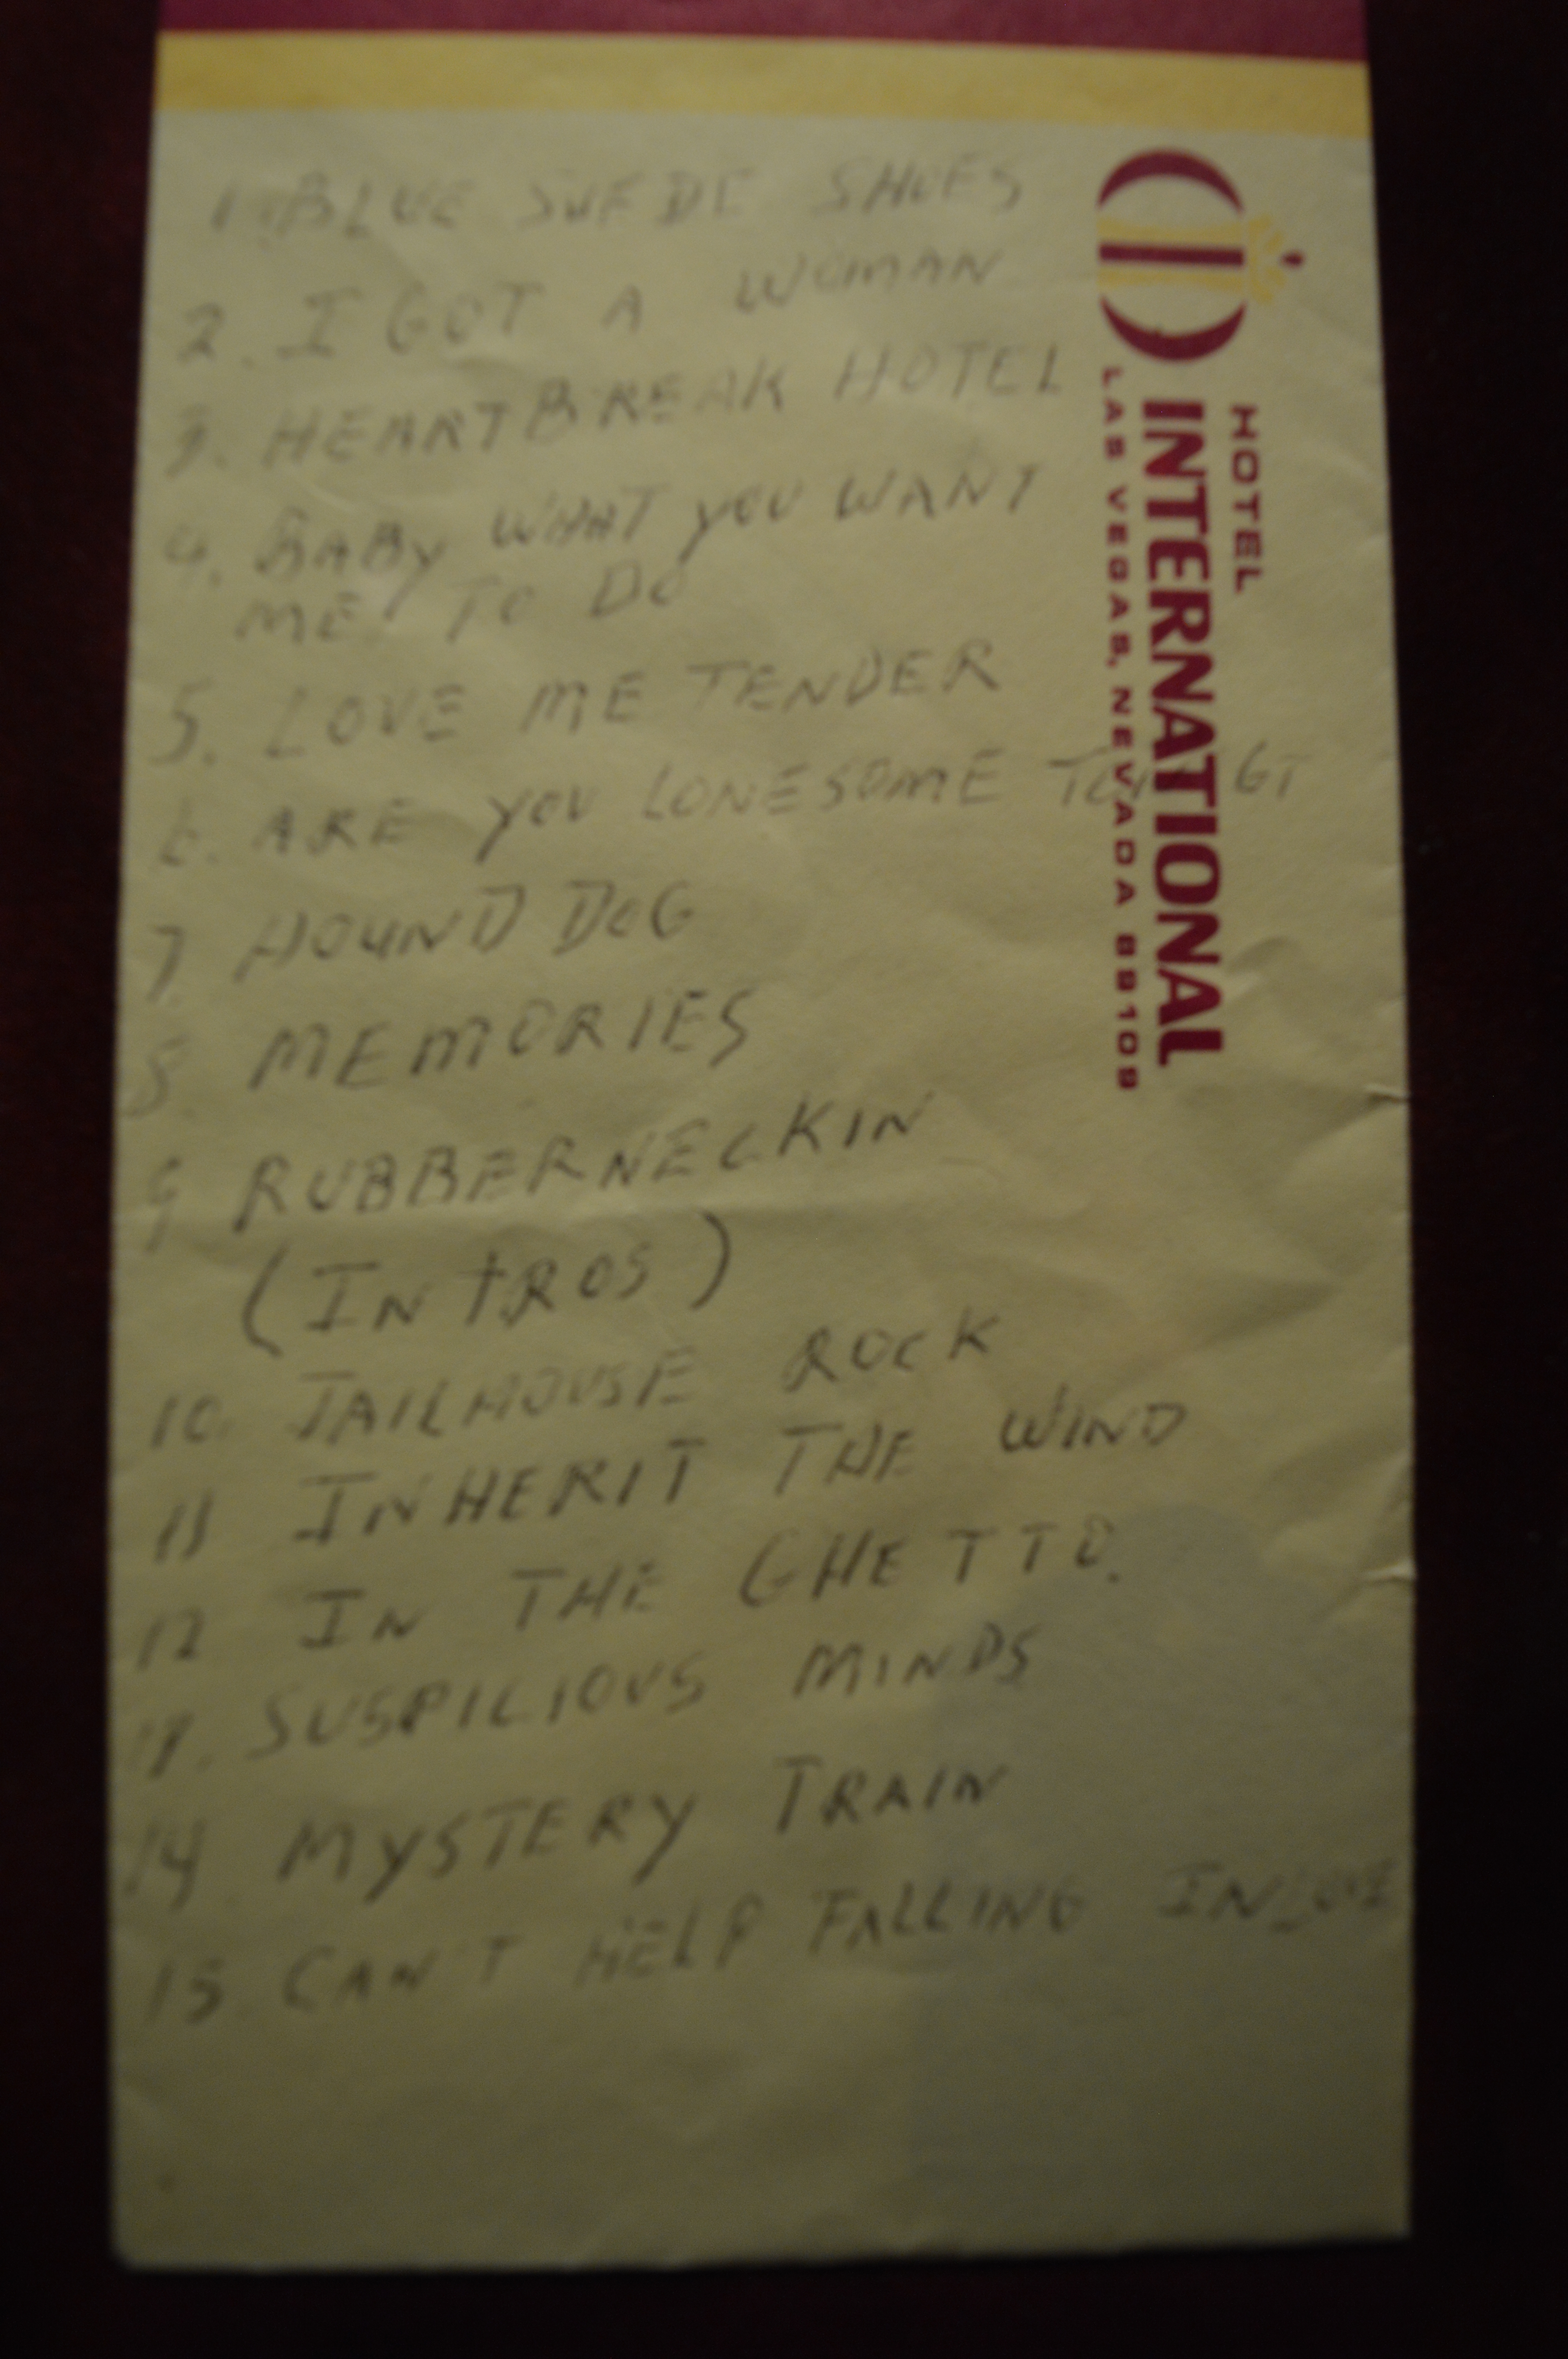 1. BLUE SUEDE SHOES
2. I GOT A WOMAN
3. HEARTBREAK HOTEL
4. BABY WHAT YOU WANT
ME TO DO
5. LOVE ME TENDER
6. ARE YOU LONESOME
7 HOUND DOG
8. MEMORIES
9 RUBBERNECKIN
(INTROS)
10. JAILHOUSE ROCK
11 INHERIT THE WIND
12 IN THE GHETTO.
13. SUSPICIOUS MINDS
14 MYSTERY TRAIN
15. CAN'T HELP FALLING IN LOVE
HOTEL
INTERNATIONAL
LAS VEGAS, NEVADA 89109